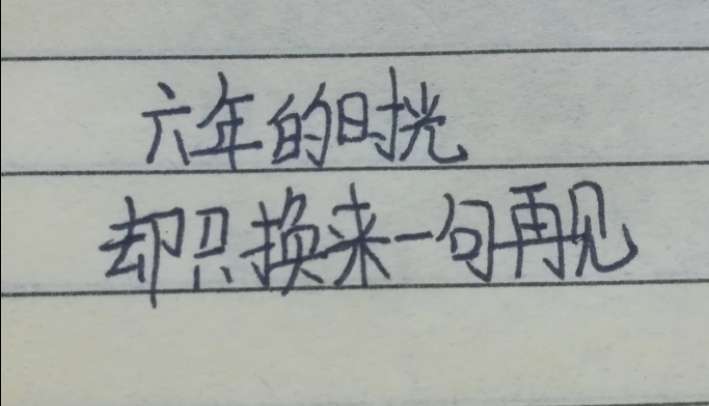 六年的时光
却只换来一句再见